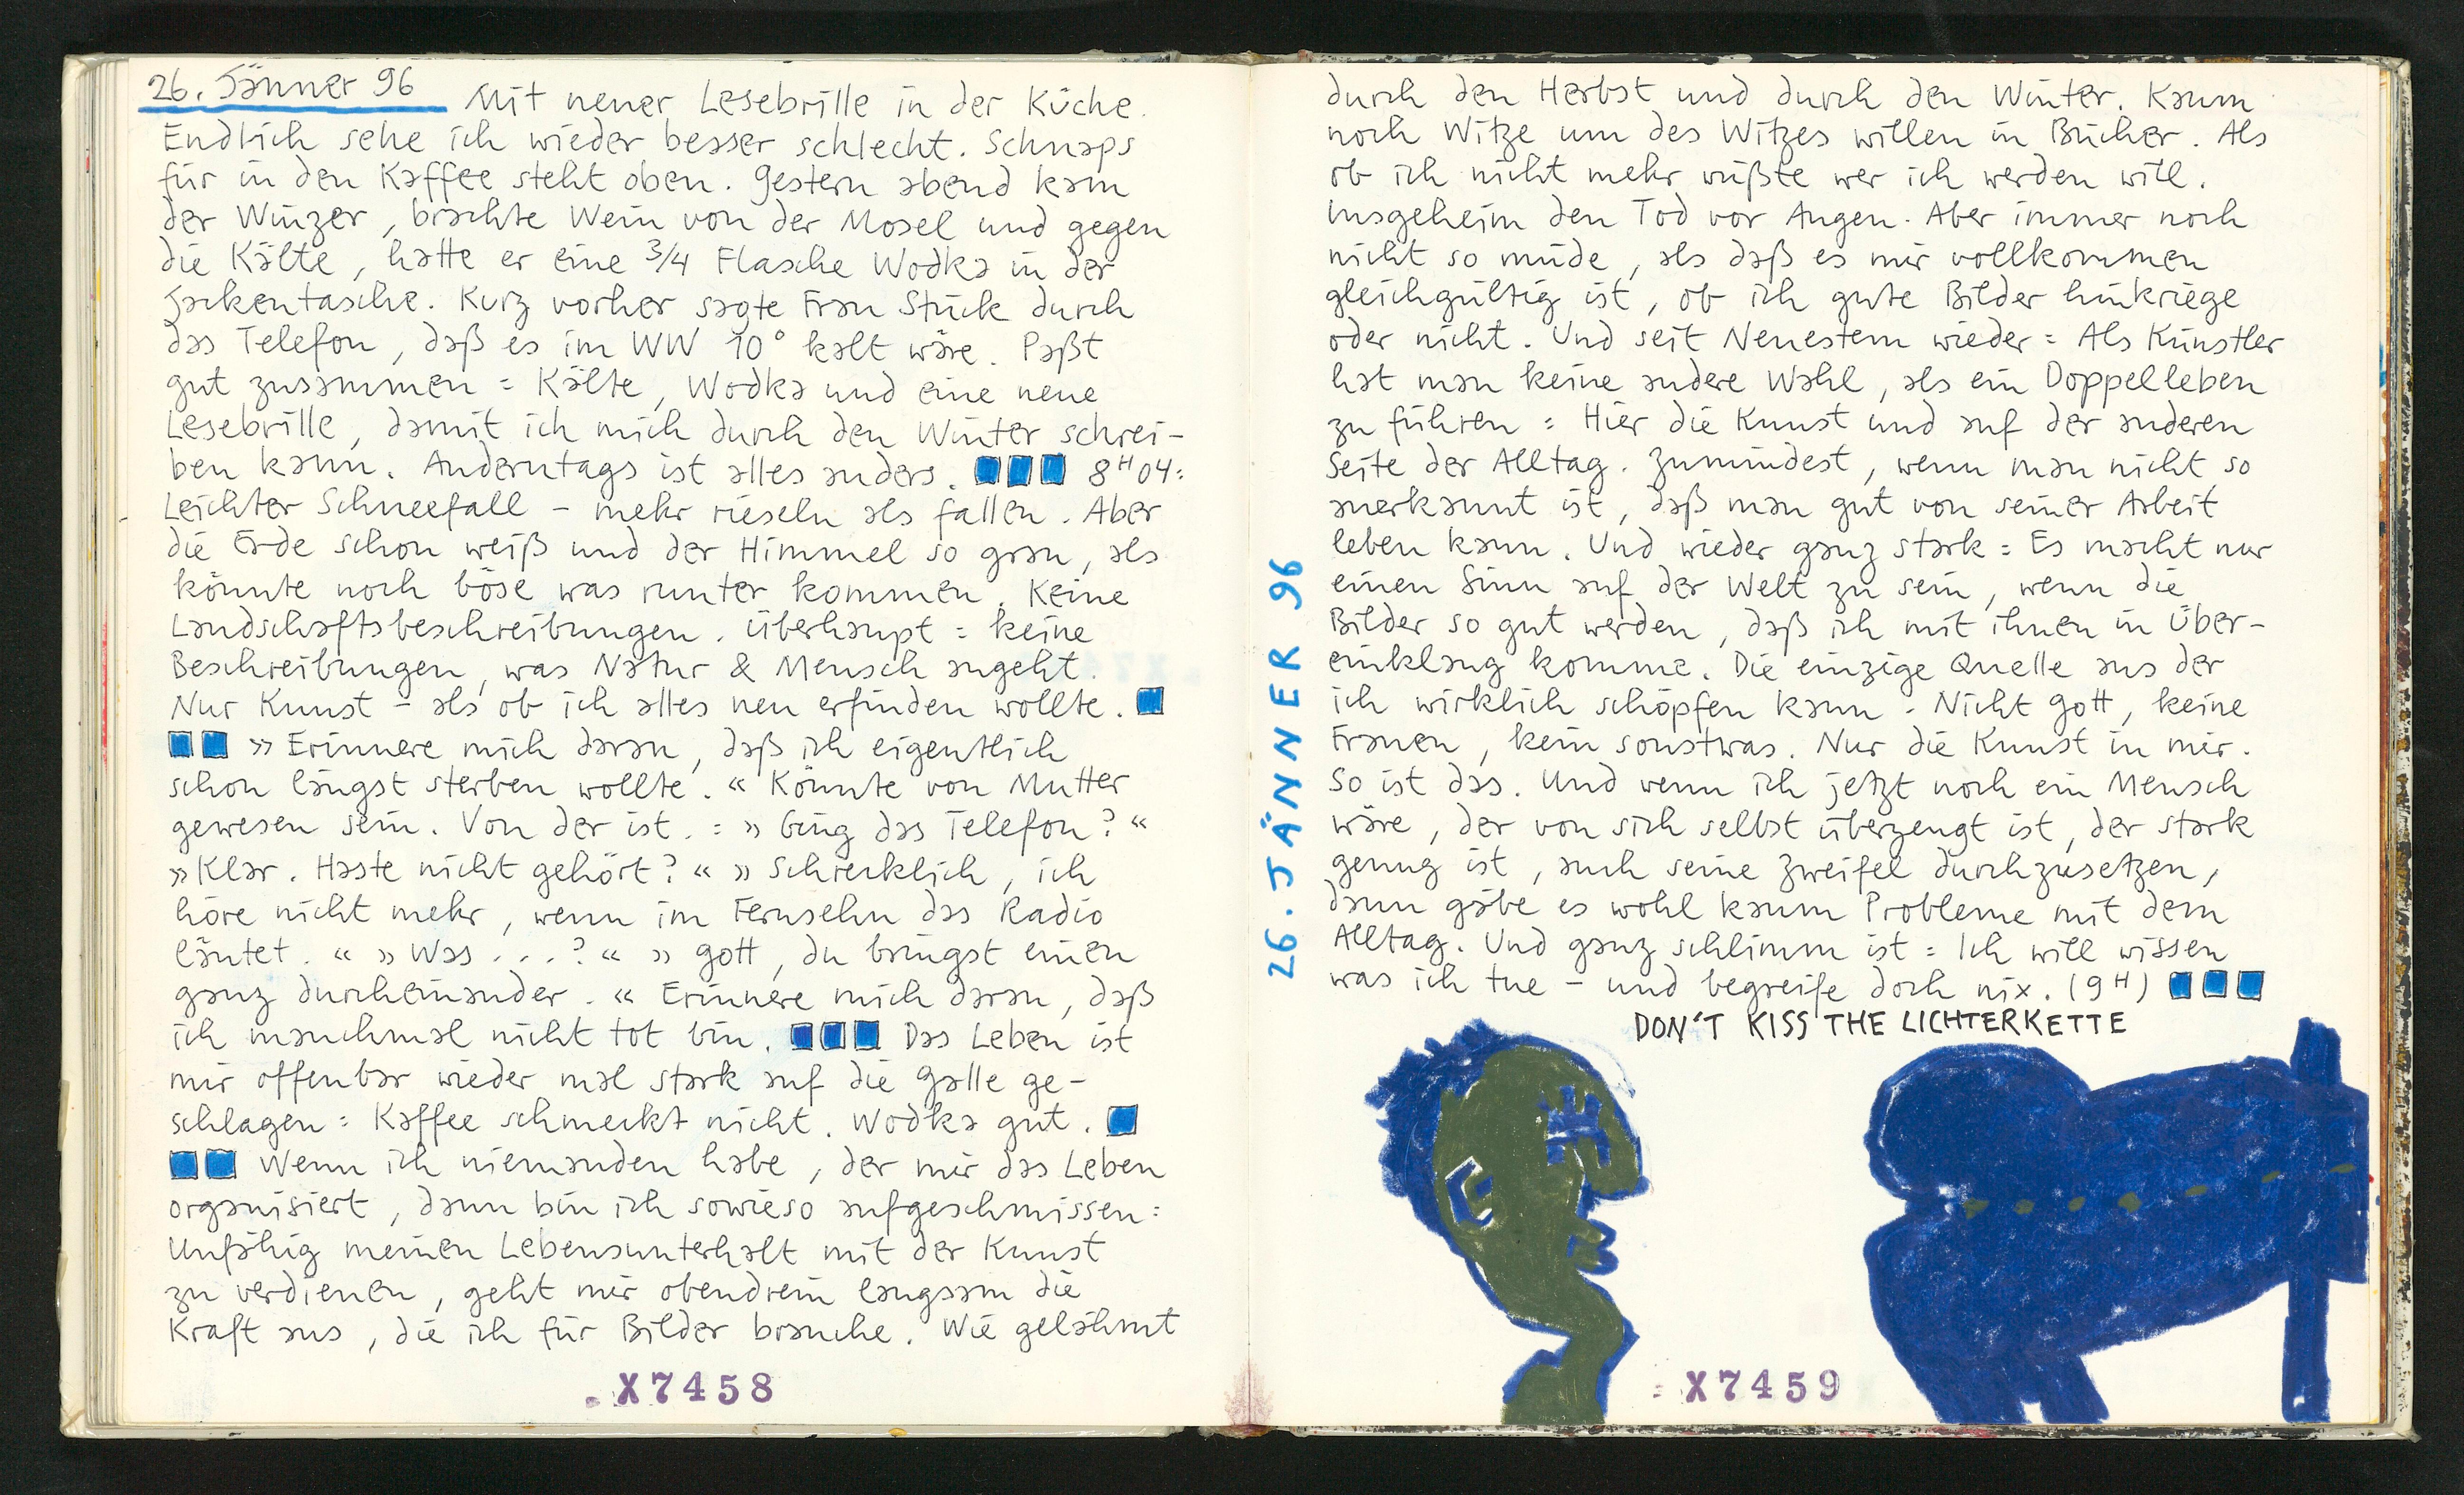 26. Jänner 96 Mit neuer Lesebrille in der Küche.
Endlich sehe ich wieder besser schlecht. Schnaps
für in den Kaffee steht oben. Gestern abend kam
der Winzer, brachte Wein von der Mosel und gegen
die Kälte, hatte er eine 3/4 Flasche Wodka in der
Jackentasche. Kurz vorher sagte Frau Stück durch
das Telefon, daß es im WW 10° kalt wäre. Paßt
gut zusammen = Kälte, Wodka und eine neue
Lesebrille, damit ich mich durch den Winter schrei-
ben kann. Anderntags ist alles anders. 8H04:
Leichter Schneefall - mehr rieseln als fallen. Aber
die Erde schon weiß und der Himmel so grau, als
könnte noch böse was runter kommen. Keine
Landschaftsbeschreibungen. Überhaupt = keine
Beschreibungen, was Natur & Mensch angeht.
Nur Kunst - als ob ich alles neu erfinden wollte.
» Erinnere mich daran, daß ich eigentlich
schon längst sterben wollte. « Könnte von Mutter
gewesen sein. Von der ist. = » Ging das Telefon? «
» Klar. Haste nicht gehört? « » Schrecklich, ich
höre nicht mehr, wenn im Fernsehn das Radio
läutet. « » Was . . . ? « » Gott, du bringst einen
ganz durcheinander. « Erinnere mich daran, daß
ich manchmal nicht tot bin. Das Leben ist
mir offenbar wieder mal stark auf die Galle ge-
schlagen = Kaffee schmeckt nicht. Wodka gut.
Wenn ich niemanden habe, der mir das Leben
organisiert, dann bin ich sowieso aufgeschmissen =
Unfähig meinen Lebensunterhalt mit der Kunst
zu verdienen, geht mir obendrein langsam die
Kraft aus, die ich für Bilder brauche. Wie gelähmt
X7458
26. JÄNNER 96
durch den Herbst und durch den Winter. Kaum
noch Witze um des Witzes willen in Bücher. Als
ob ich nicht mehr wüßte wer ich werden will.
Insgeheim den Tod vor Augen. Aber immer noch
nicht so müde, als daß es mir vollkommen
gleichgültig ist, ob ich gute Bilder hinkriege
oder nicht. Und seit Neuestem wieder = Als Künstler
hat man keine andere Wahl, als ein Doppelleben
zu führen = Hier die Kunst und auf der anderen
Seite der Alltag. Zumindest, wenn man nicht so
anerkannt ist, daß man gut von seiner Arbeit
leben kann. Und wieder ganz stark = Es macht nur
einen Sinn auf der Welt zu sein, wenn die
Bilder so gut werden, daß ich mit ihnen in Über-
einklang komme. Die einzige Quelle aus der
ich wirklich schöpfen kann - Nicht Gott, keine
Frauen, kein sonstwas. Nur die Kunst in mir.
So ist das. Und wenn ich jetzt noch ein Mensch
wäre, der von sich selbst überzeugt ist, der stark
genug ist, auch seine Zweifel durchzusetzen,
dann gäbe es wohl kaum Probleme mit dem
Alltag. Und ganz schlimm ist = Ich will wissen
was ich tue - und begreife doch nix. (9H)
DON'T KISS THE LICHTERKETTE
X7459